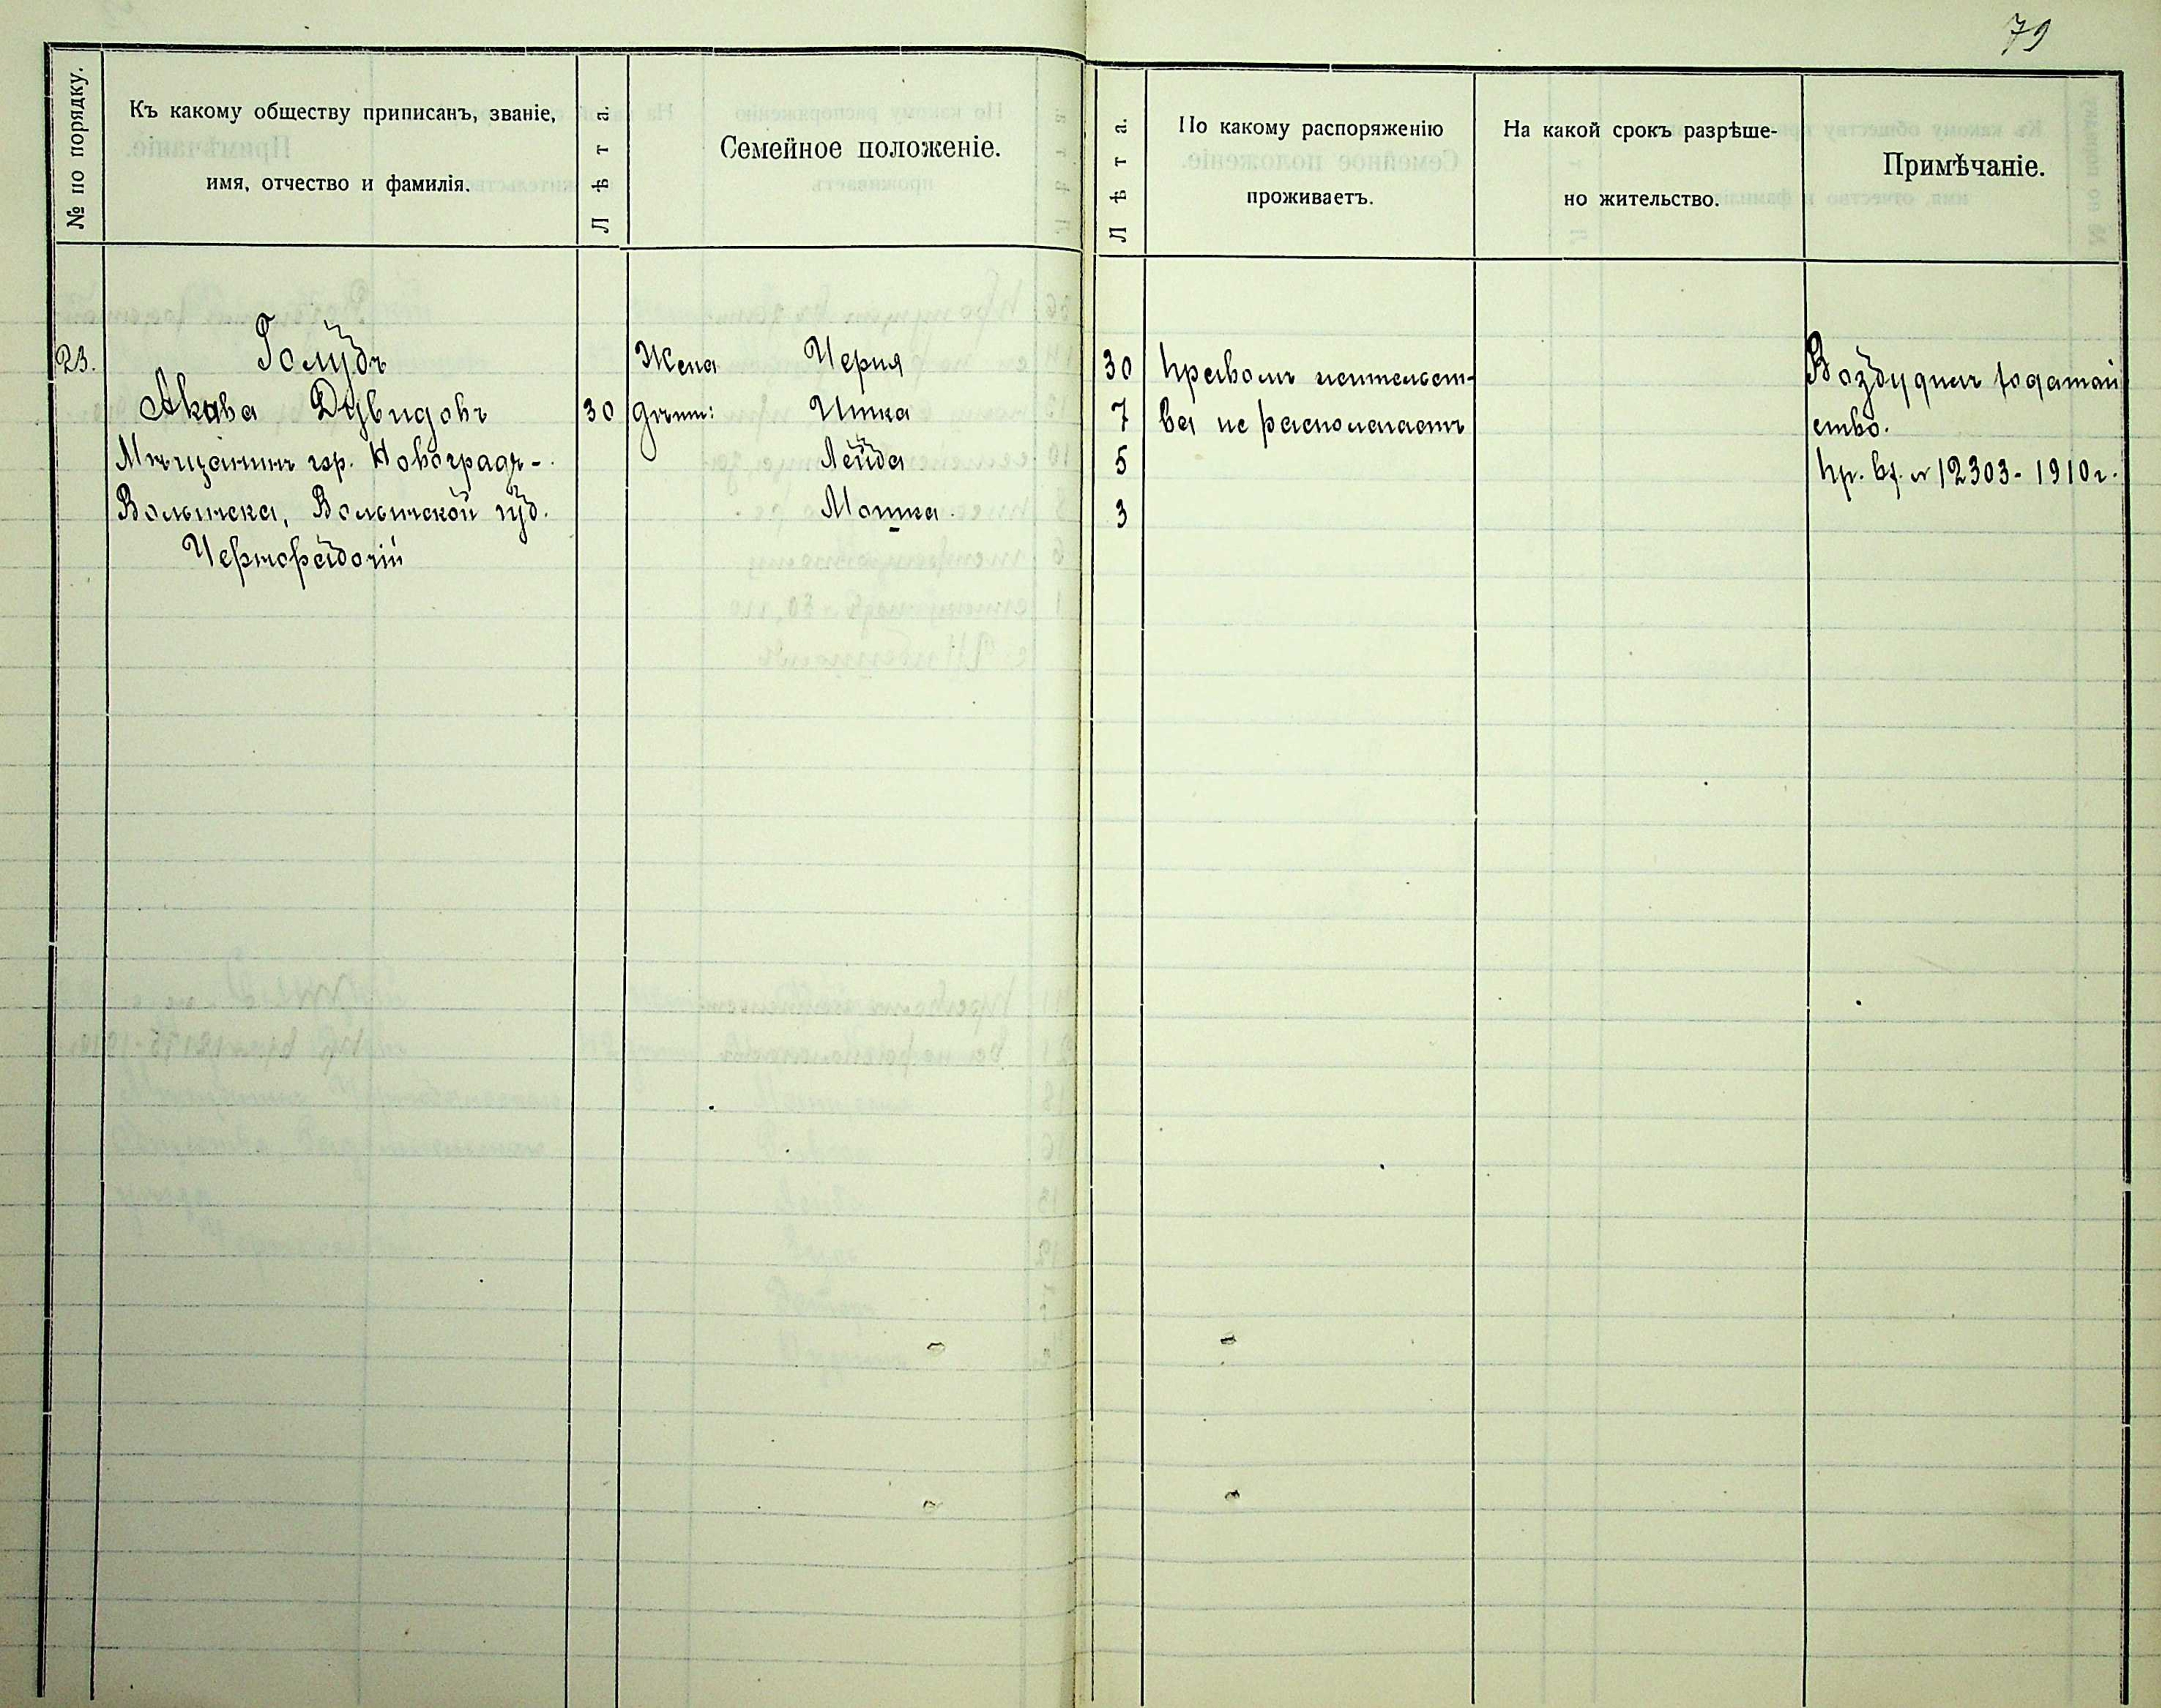 79
№ по порядку.
Къ какому обществу приписанъ, званіе,
имя, отчество и фамилія.
Лѣта.
Семейное положеніе.
Лѣта.
По какому распоряженію
проживаетъ.
На какой срокъ разрѣше-
но жительство.
Примѣчаніе.
23.
Голубъ
Акива Дувидовъ
Мѣщанинъ гор. Новоградъ-
Волынска, Волынской губ.
Чернорабочій
30
Жена Черня
дѣти: Итка
Лейба
Мошка.
30
7
5
3
Правомъ жительст-
ва не располагаетъ
Возбуднлъ ходатай
ство.
Пр. вх. № 12303 - 1910 г.